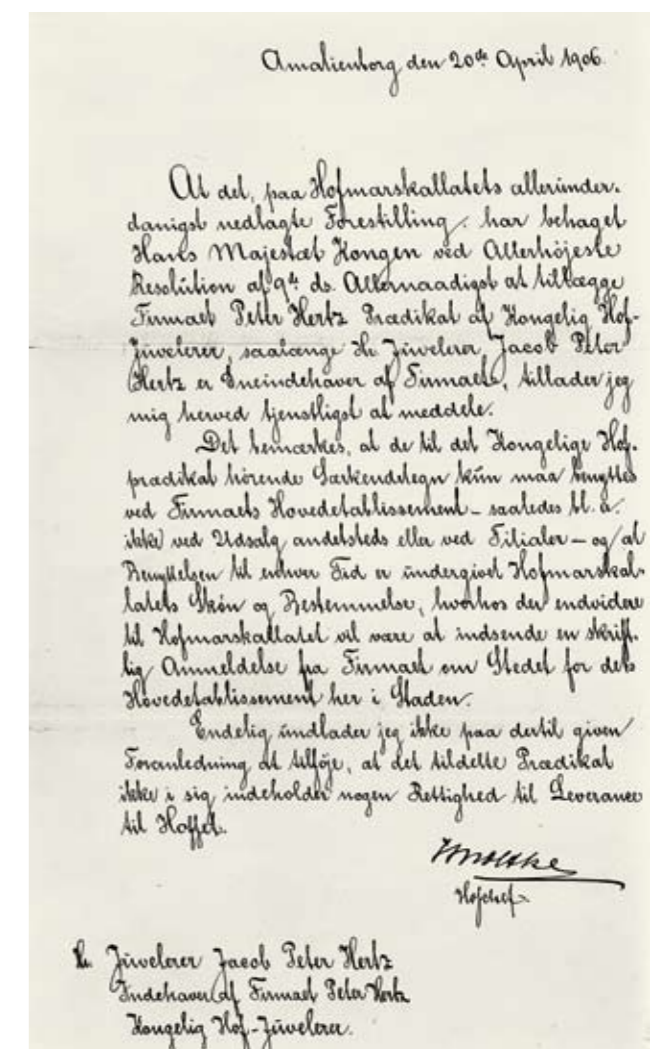 Amalienborg den 20de April 1906.
At det, paa Hofmarskallatets allerunder-
danigst nedlagte Forestilling, har behaget
Hans Majestæt Kongen ved Allerhöjeste
Resolution af 9de ds. Allernaadigst at tillægge
Firmaet Peter Hertz Prædikat af Kongelig Hof-
Juvelerer, saalænge Hr. Juvelerer Jacob Peter
Hertz er Eneindehaver af Firmaet, tillader jeg
mig herved tjenstligst at meddele.
Det bemærkes, at de til det Kongelige Hof-
prædikat hörende Særkendetegn kun maa benyttes
ved Firmaets Hovedetablissement – saaledes bl. a.
ikke ved Udsalg andetsteds eller ved Filialer – og at
Benyttelsen til enhver Tid er undergivet Hofmarskal-
latets Skøn og Bestemmelse, hvorhos der endvidere
til Hofmarskallatet vil være at indsende en skrift-
lig Anmeldelse fra Firmaet om Stedet for dets
Hovedetablissement her i Staden.
Endelig undlader jeg ikke paa dertil given
Foranledning at tilföje, at det tildelte Prædikat
ikke i sig indeholder nogen Rettighed til Leverance
til Hoffet.
Moltke
Hofchef.
Hr. Juvelerer Jacob Peter Hertz
Indehaver af Firmaet Peter Hertz
Kongelig Hof-Juvelerer.